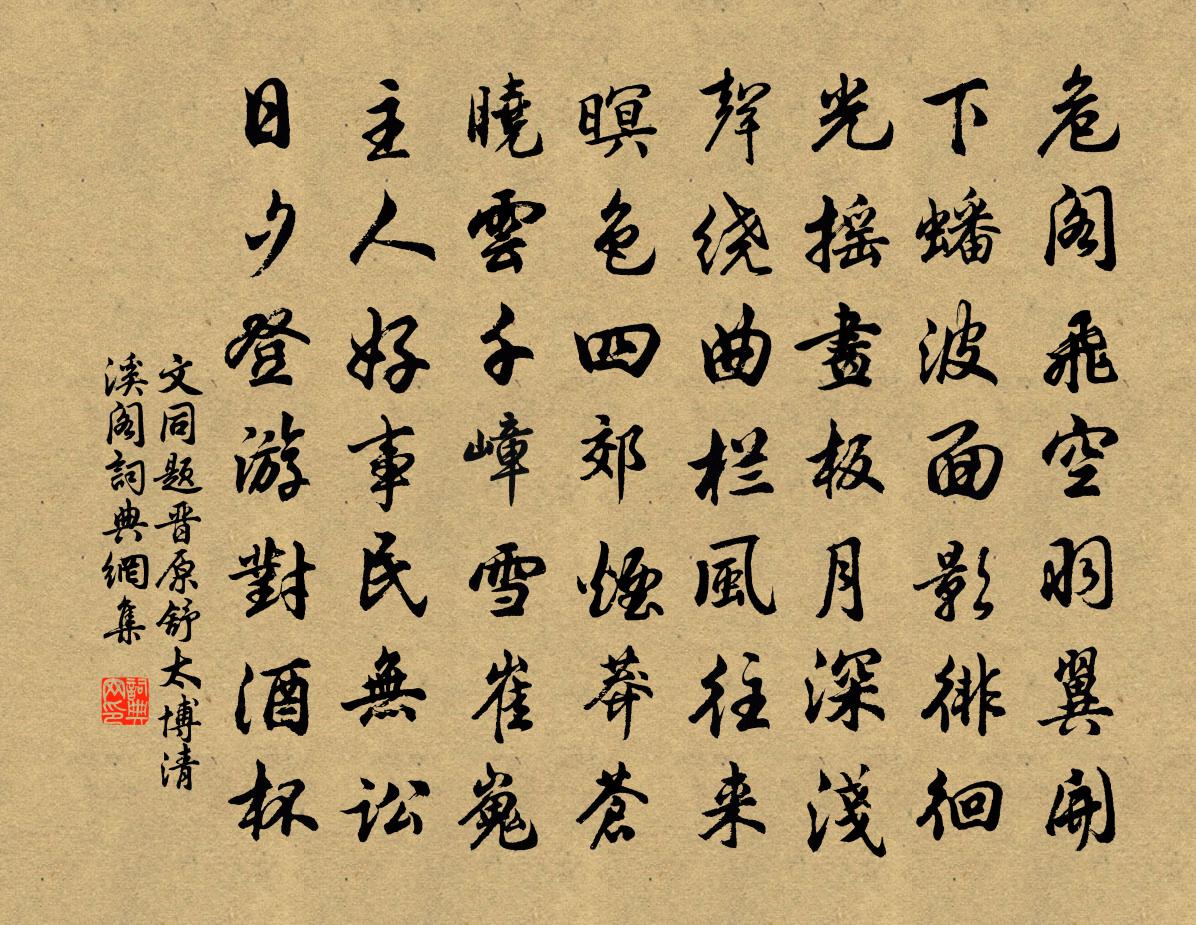 危阁飛空羽翼開
下蟠波面影徘徊
光摇畫板月深淺
聲绕曲栏風往来
暝色四郊煙莽蒼
曉雲千嶂雪崔嵬
主人好事民無訟
日夕登游對酒杯
文同题晋原舒太博清
溪阁詞典網集
詞典网印